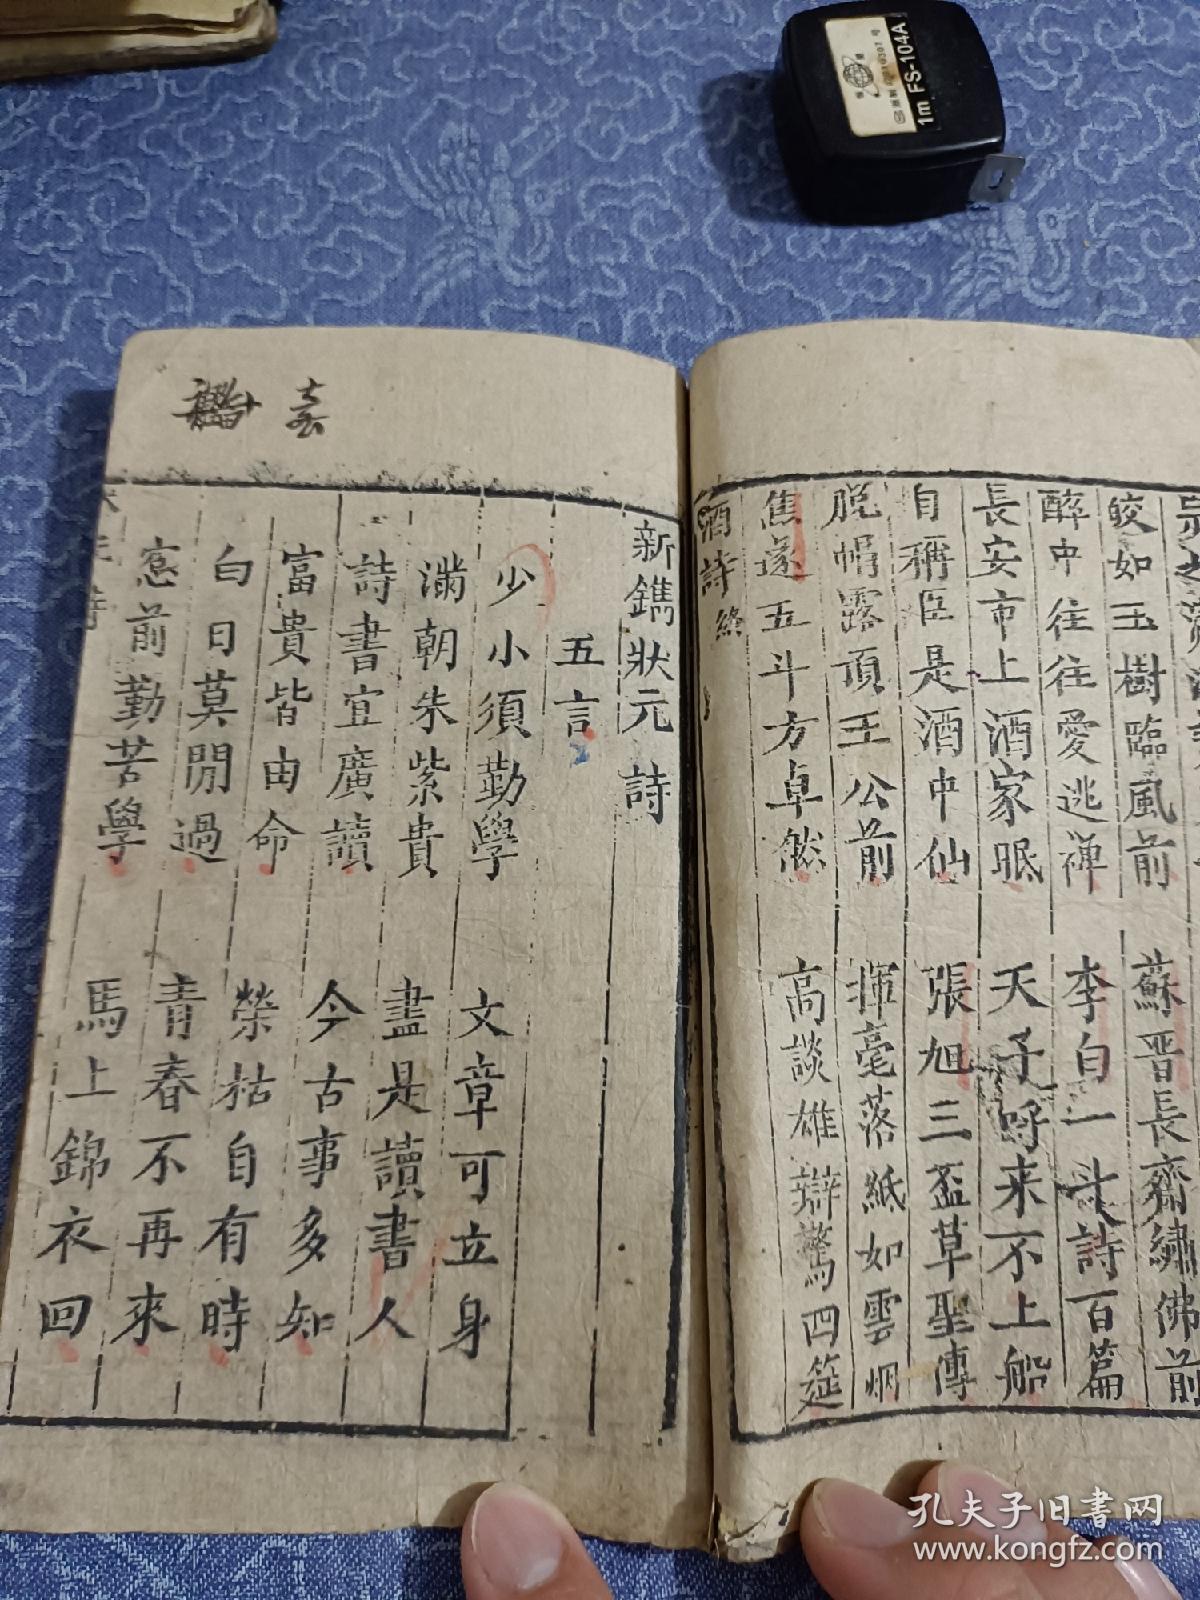 皎如玉樹臨風前
蘇晋長齋繡佛前
醉中往往愛逃禅
李白一斗詩百篇
長安市上酒家眠
天子呼来不上船
自稱臣是酒中仙
張旭三盃草聖傳
脱帽露頂王公前
揮毫落紙如雲烟
焦遂五斗方卓然
高談雄辯驚四筵
酒詩終
新鐫狀元詩
五言
少小須勤學
文章可立身
滿朝朱紫貴
盡是讀書人
詩書宜廣讀
今古事多知
富貴皆由命
榮枯自有時
白日莫閒過
青春不再來
窓前勤苦學
馬上錦衣回
1m FS-104A
孔夫子旧书网
www.kongfz.com